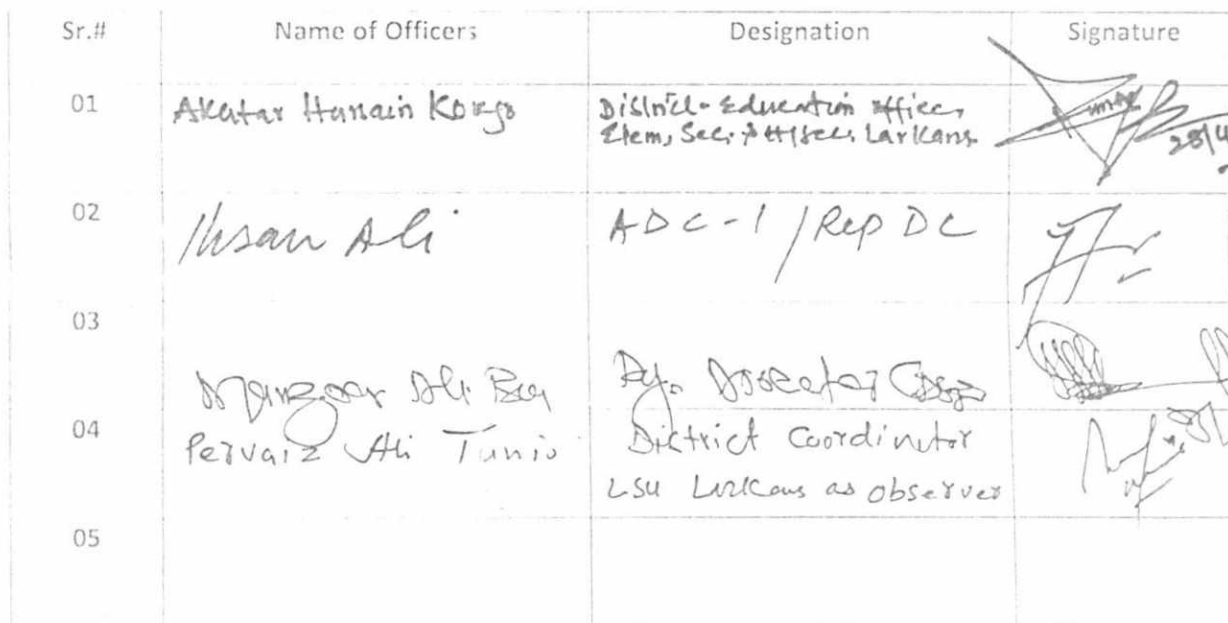 Sr.# Name of Officers Designation Signature
01 Akhtar Hussain Korejo District Education Officer
Elem, Sec: & H/Sec: Larkana
02 Ihsan Ali ADC-1 / Rep DC
03
Manzoor Ali Dy. Director
04 Pervaiz Ali Tunio District Coordinator
LSU Larkana as Observer
05